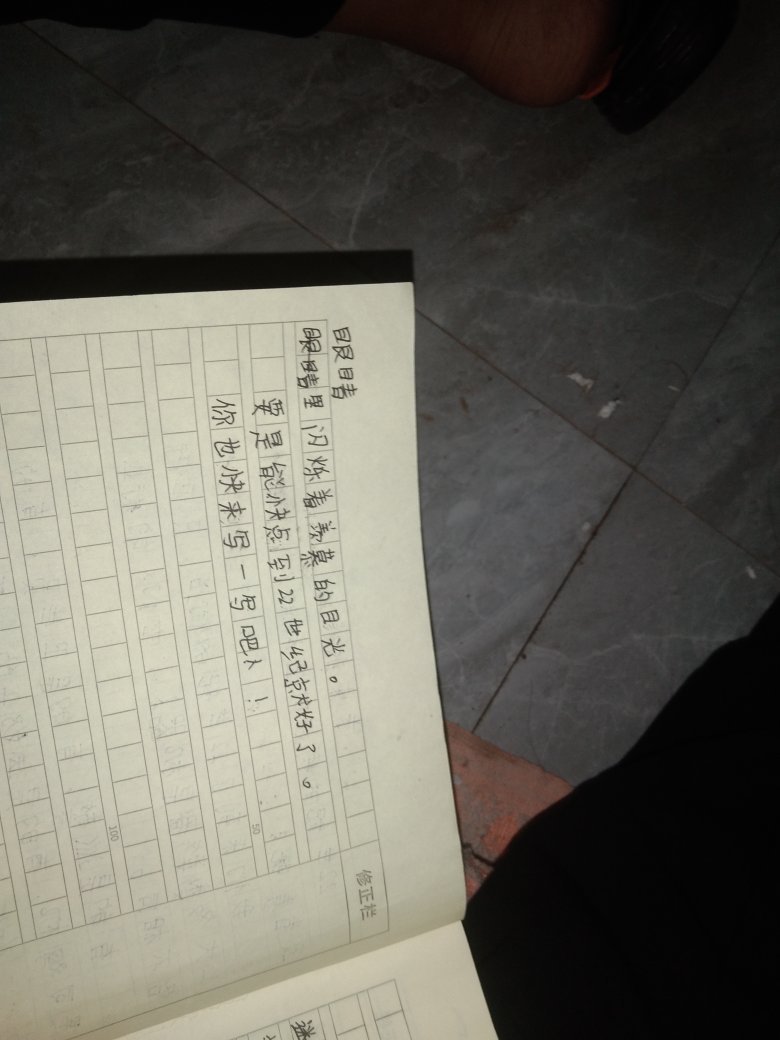 眼睛
眼睛里闪烁着羡慕的目光。
要是能快点到22世纪就好了。
你也快来写一写吧！
50
100
修正栏